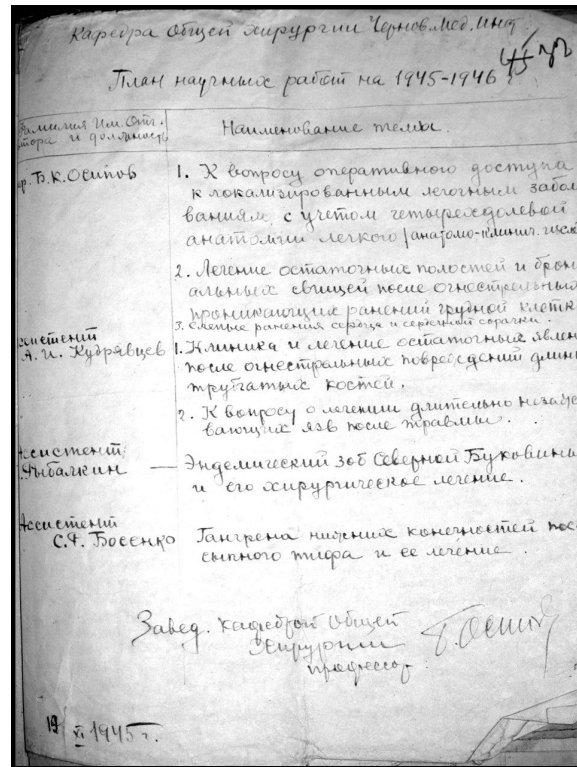 Кафедра Общей хирургии Чернов. Мед. Инст.
План научных работ на 1945-1946 г.
Фамилия Им. Отч.
автора и должность
Наименование темы.
пр. Б. К. Осипов
1. К вопросу оперативного доступа
к локализированным легочным забол
ваниям с учетом четырехдолевой
анатомии легкого /анатомо-клинич.
2. Лечение остаточных полостей и брон
альных свищей после огнестрельных
проникающих ранений грудной клетк
3. Слепые ранения сердца и сердечной сорочки.
ссистент
А. И. Кудрявцев
1. Клиника и лечение остаточных явлен
после огнестрельных повреждений длин
трубчатых костей.
2. К вопросу о лечении длительно незажи
вающих язв после травмы.
Ассистент
Рыбалкин — Эндемический зоб Северной Буковины
и его хирургическое лечение.
Ассистент
С. Ф. Босенко
Гангрена нижних конечностей пос
сыпного тифа и ее лечение.
Завед. кафедрой Общей
Хирургии
профессор
19 XI 1945 г.